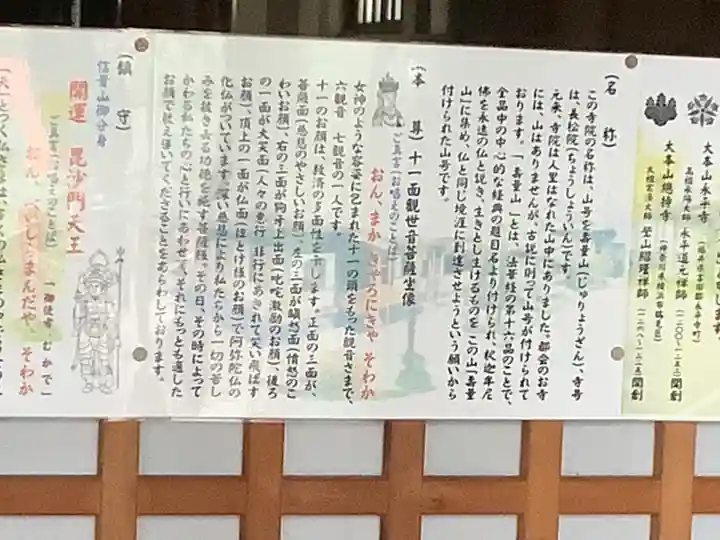 大本山永平寺
（福井県吉田郡永平寺町）
高祖承陽大師 永平道元禅師
開創
大本山總持寺
（神奈川県横浜市鶴見区）
太祖常済大師 瑩山紹瑾禅師
開創
（名 称）
この寺院の名称は、山号を壽量山（じゅりょうざん）、寺号
は、長松院（ちょうしょういん）です。
元来、寺院は人里はなれた山中にありました。都会のお寺
には、山はありませんが、古規に則って山号が付けられて
おります。「壽量山」とは、法華経の第十六品のことで、
全品中の中心的な経典の題目名より付けられ、釈迦牟尼
佛を永遠の仏と説き、生きとし生けるものをこの山「壽量
山」に昇め、仏と同じ境涯に到達させようという願いから
付けられた山号です。
（本 尊）十一面観世音菩薩坐像
ご真言（お唱えのことば）
おん、まか きゃろにきゃ そわか
女神のような容姿に包まれた十一の頭をもった観音さまで、
六観音 七観音の一人です。
十一のお顔は、救済の多面性を示します。正面の三面が、
菩薩面（慈悲のやさしいお顔）、左の三面が瞋怒面（憤怒のこ
わいお顔）、右の三面が狗牙上出面（叱咤激励のお顔）、後ろ
の一面が大笑面（人々の悪行 非行にあきれて笑い飛ばす
お顔）、頂上の一面が仏面（ほとけ様のお顔）で阿弥陀仏の
化仏がついています。深い慈悲により私たちから一切の苦し
みを抜き去る功徳を施す菩薩様。その日、その時によって
かわる私たちの心と行いにあわせて、それにもっとも適した
お顔で教え導いてくださることをあらわしております。
（鎮 守）
信貴山御分身
開運 毘沙門天王
「御使者 むかで」
ご真言（お唱えのことば）
おん、まんだや、そわか